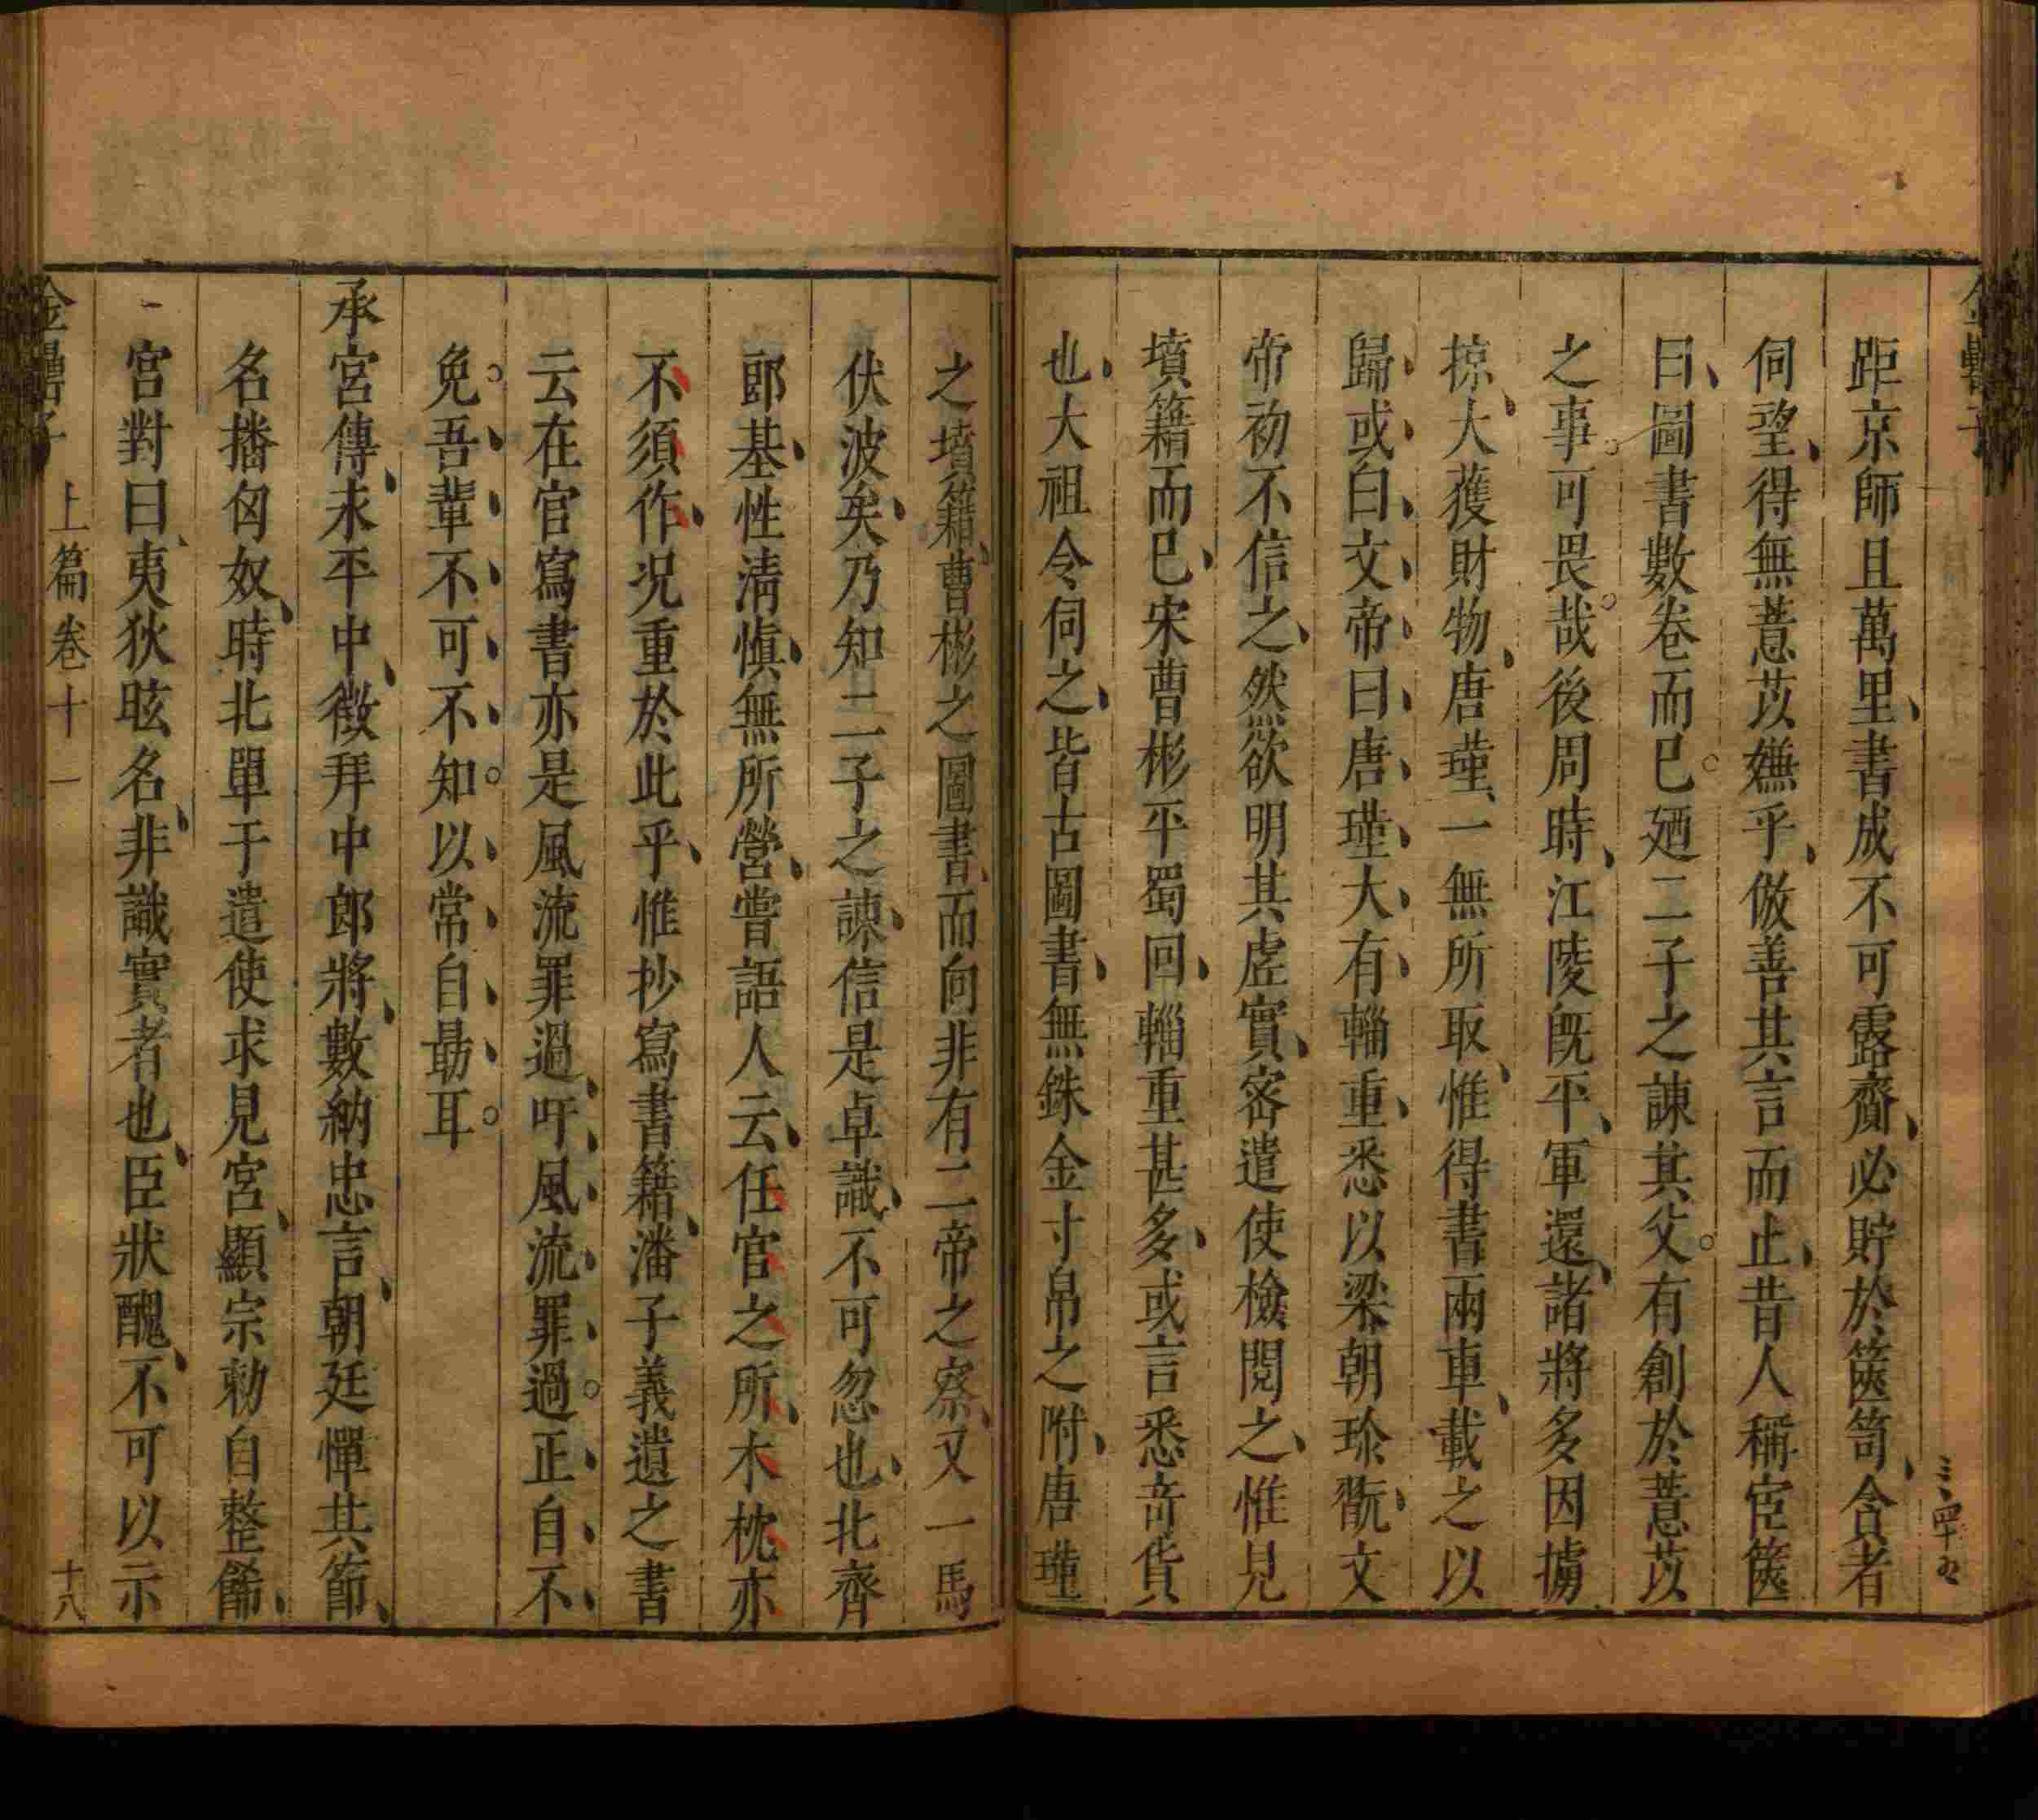 距京師且萬里書成不可露齎必貯於篋笥含者
伺望得無薏苡嫌乎倣善其言而止昔人稱宦篋
曰圖書數卷而已廼二子之諫其父有創於薏苡
之事可畏哉後周時江陵旣平軍還諸將多因擄
掠大獲財物唐瑾一無所取惟得書兩車載之以
歸或白文帝曰唐瑾大有輜重悉以梁朝珍翫文
帝初不信之然欲明其虛實密遣使檢閱之惟見
墳籍而已宋曹彬平蜀回輜重甚多或言悉奇貨
也大祖令伺之皆古圖書無銖金寸帛之附唐瑾
之墳籍曹彬之圖書而向非有二帝之察又一馬
伏波矣乃知二子之諫信是卓識不可忽也北齊
郎基性清愼無所營嘗語人云任官之所木枕亦
不須作况重於此乎惟抄寫書籍潘子義遺之書
云在官寫書亦是風流罪過吁風流罪過正自不
免吾輩不可不知以常自勗耳
承宮傳永平中徵拜中郎將數納忠言朝廷憚其節
名播匈奴時北單于遣使求見宮顯宗勅自整飾
宮對曰夷狄眩名非識實者也臣狀醜不可以示
上篇卷十一
十八